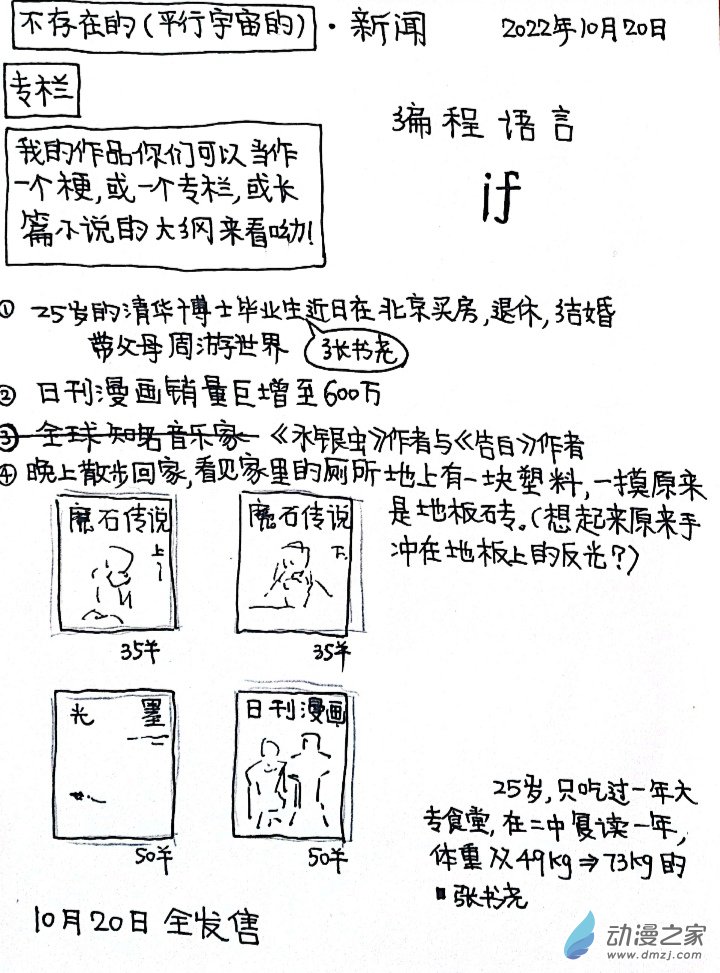 不存在的(平行宇宙的)·新闻
2022年10月20日
专栏
编程语言
if
我的作品你们可以当作
一个梗,或一个专栏,或长
篇小说的大纲来看呦!
① 25岁的清华博士毕业生近日在北京买房,退休,结婚
带父母周游世界
张书尧
② 日刊漫画销量巨增至600万
③ 全球知名音乐家 《水银虫》作者与《告白》作者
④ 晚上散步回家,看见家里的厕所地上有一块塑料,一摸原来
是地板砖。(想起来原来手
冲在地板上的反光?)
魔石传说
上
35羊
魔石传说
下
35羊
光 墨
50羊
日刊漫画
50羊
25岁,只吃过一年大
专食堂,在二中复读一年,
体重从49kg⇒73kg的
张书尧
10月20日全发售
动漫之家
www.dmzj.com